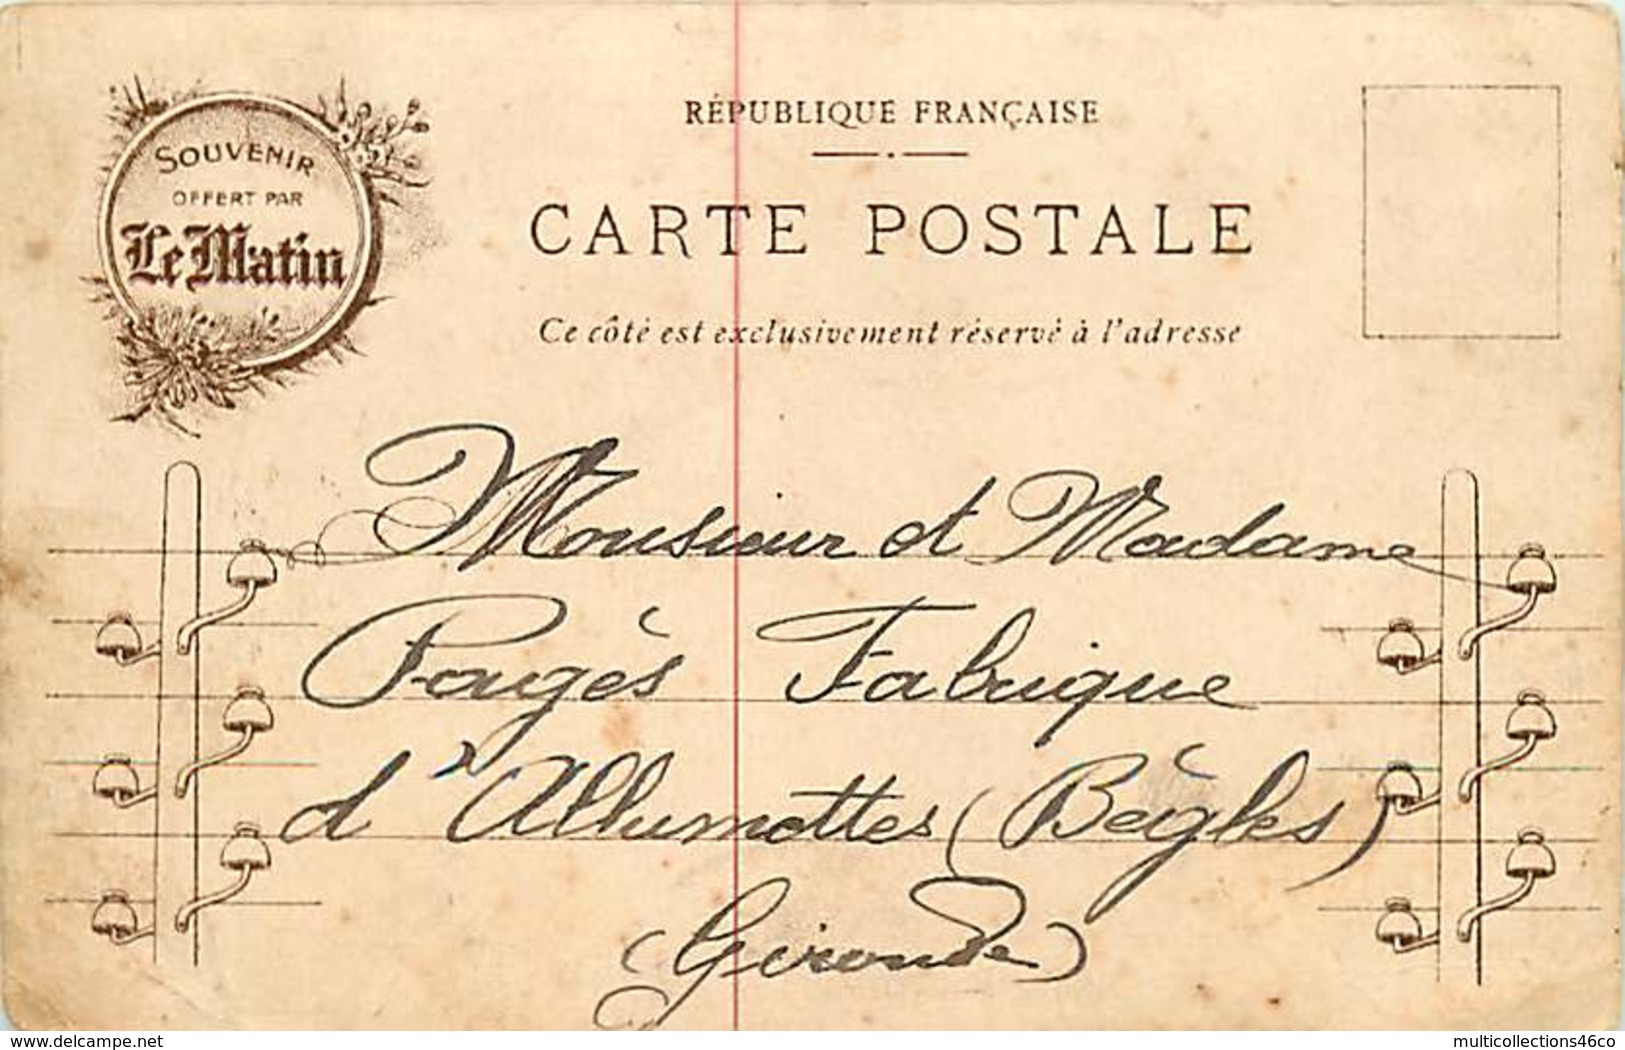 SOUVENIR
OFFERT PAR
Le Matin
RÉPUBLIQUE FRANÇAISE
CARTE POSTALE
Ce côté est exclusivement réservé à l'adresse
Monsieur et Madame
Pagès Fabrique
d'Allumettes (Bègles)
(Gironde)
delcampe.net
multicollections46co